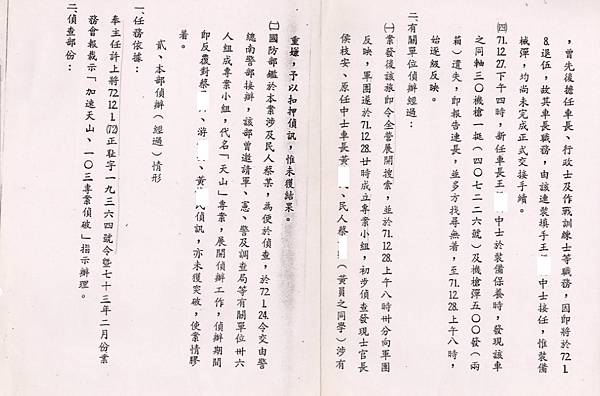 ，曾先後擔任車長、行政士及作戰訓練士等職務，因即將於72.1.
8.退伍，故其車長職務，由該連裝填手王 中士接任，惟裝備
械彈，均尚未完成正式交接手續。
㈣71.12.27.下午四時，新任車長王 中士於裝備保養時，發現該車
之同軸三０機槍一挺（四０七二二六號）及機槍彈五００發（兩
箱）遺失，即報告連長，並多方找尋無著，至71.12.28.上午八時，
始逐級反映。
二、有關單位偵辦經過：
㈠案發後該旅即令全營展開搜索，並於71.12.28.上午八時卅分向軍團
反映，軍團遂於71.12.28.廿時成立專案小組，初步偵查發現士官長
侯枝安、原任中士車長黃 、民人蔡 （黃員之同學）涉有
重嫌，予以扣押偵訊，惟未獲結果。
㈡國防部鑑於本案涉及民人蔡某，為便於偵查，於72.1.24.令交由警
總南警部接辦，該部曾邀請軍、憲、警及調查局等有關單位卅六
人組成專案小組，代名「天山」專案，展開偵辦工作，偵辦期間
即反覆對蔡 、游 、黃 偵訊，亦未獲突破，使案情膠
著。
貳、本部偵辦（經過）情形
一、任務依據：
奉主任許上將72.12.1.(72)正壯字一九三六四號令暨七十三年二月份業
務會報裁示「加速天山、一０三專案偵破」指示辦理。
二、偵查部份：